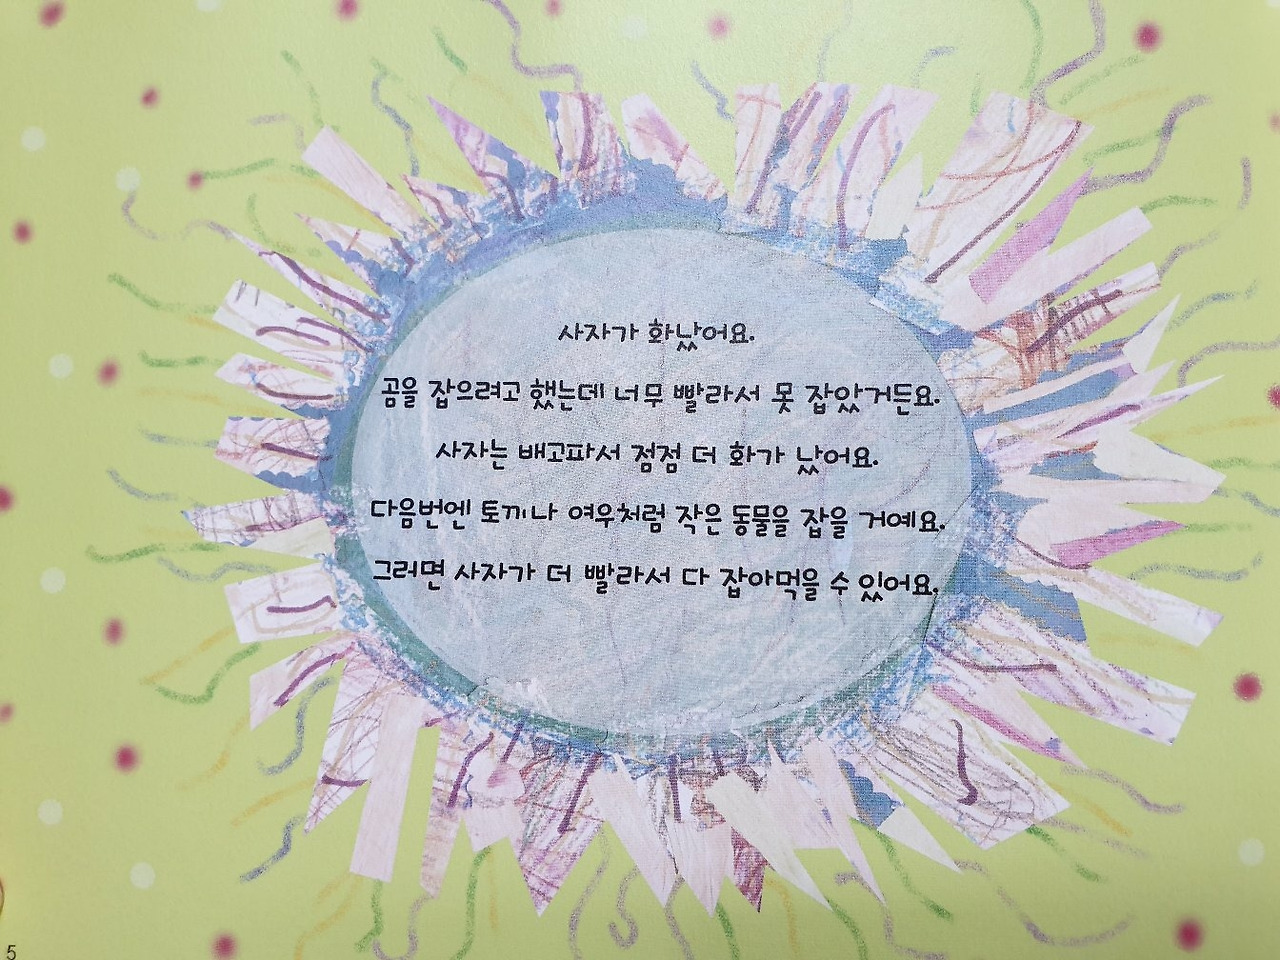 사자가 화났어요.
곰을 잡으려고 했는데 너무 빨라서 못 잡았거든요.
사자는 배고파서 점점 더 화가 났어요.
다음번엔 토끼나 여우처럼 작은 동물을 잡을 거예요.
그러면 사자가 더 빨라서 다 잡아먹을 수 있어요.
5